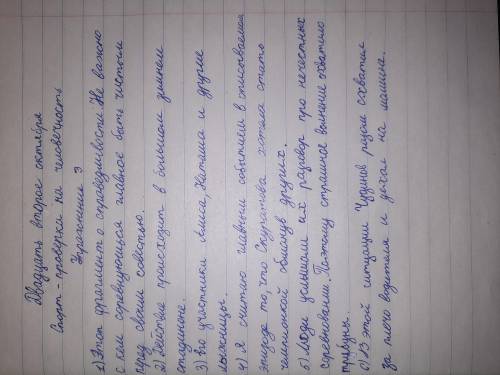 Двадцать второе октября
Спорт - проверка на человечность
Упражнение 9
1) Этот фрагмент о справедливости. Не важно
с кем соревнующься главное быть чистым
перед своим совестью.
2) Действие происходит в большом зимнем
стадионе.
3) Его участники Алиса, Наташа и другие
лыжницы.
4) Я считаю главным событием в описываемом
эпизоде то, что Скуратова хотела стать
чемпионкой обманув других.
5) Люди услышали их разговор про нечестных
соревновании. Поэтому страшное волнение охватило
трибуны.
6) В этой ситуации Чудинов разом схватил
за плечо водителя и уехал на машина.